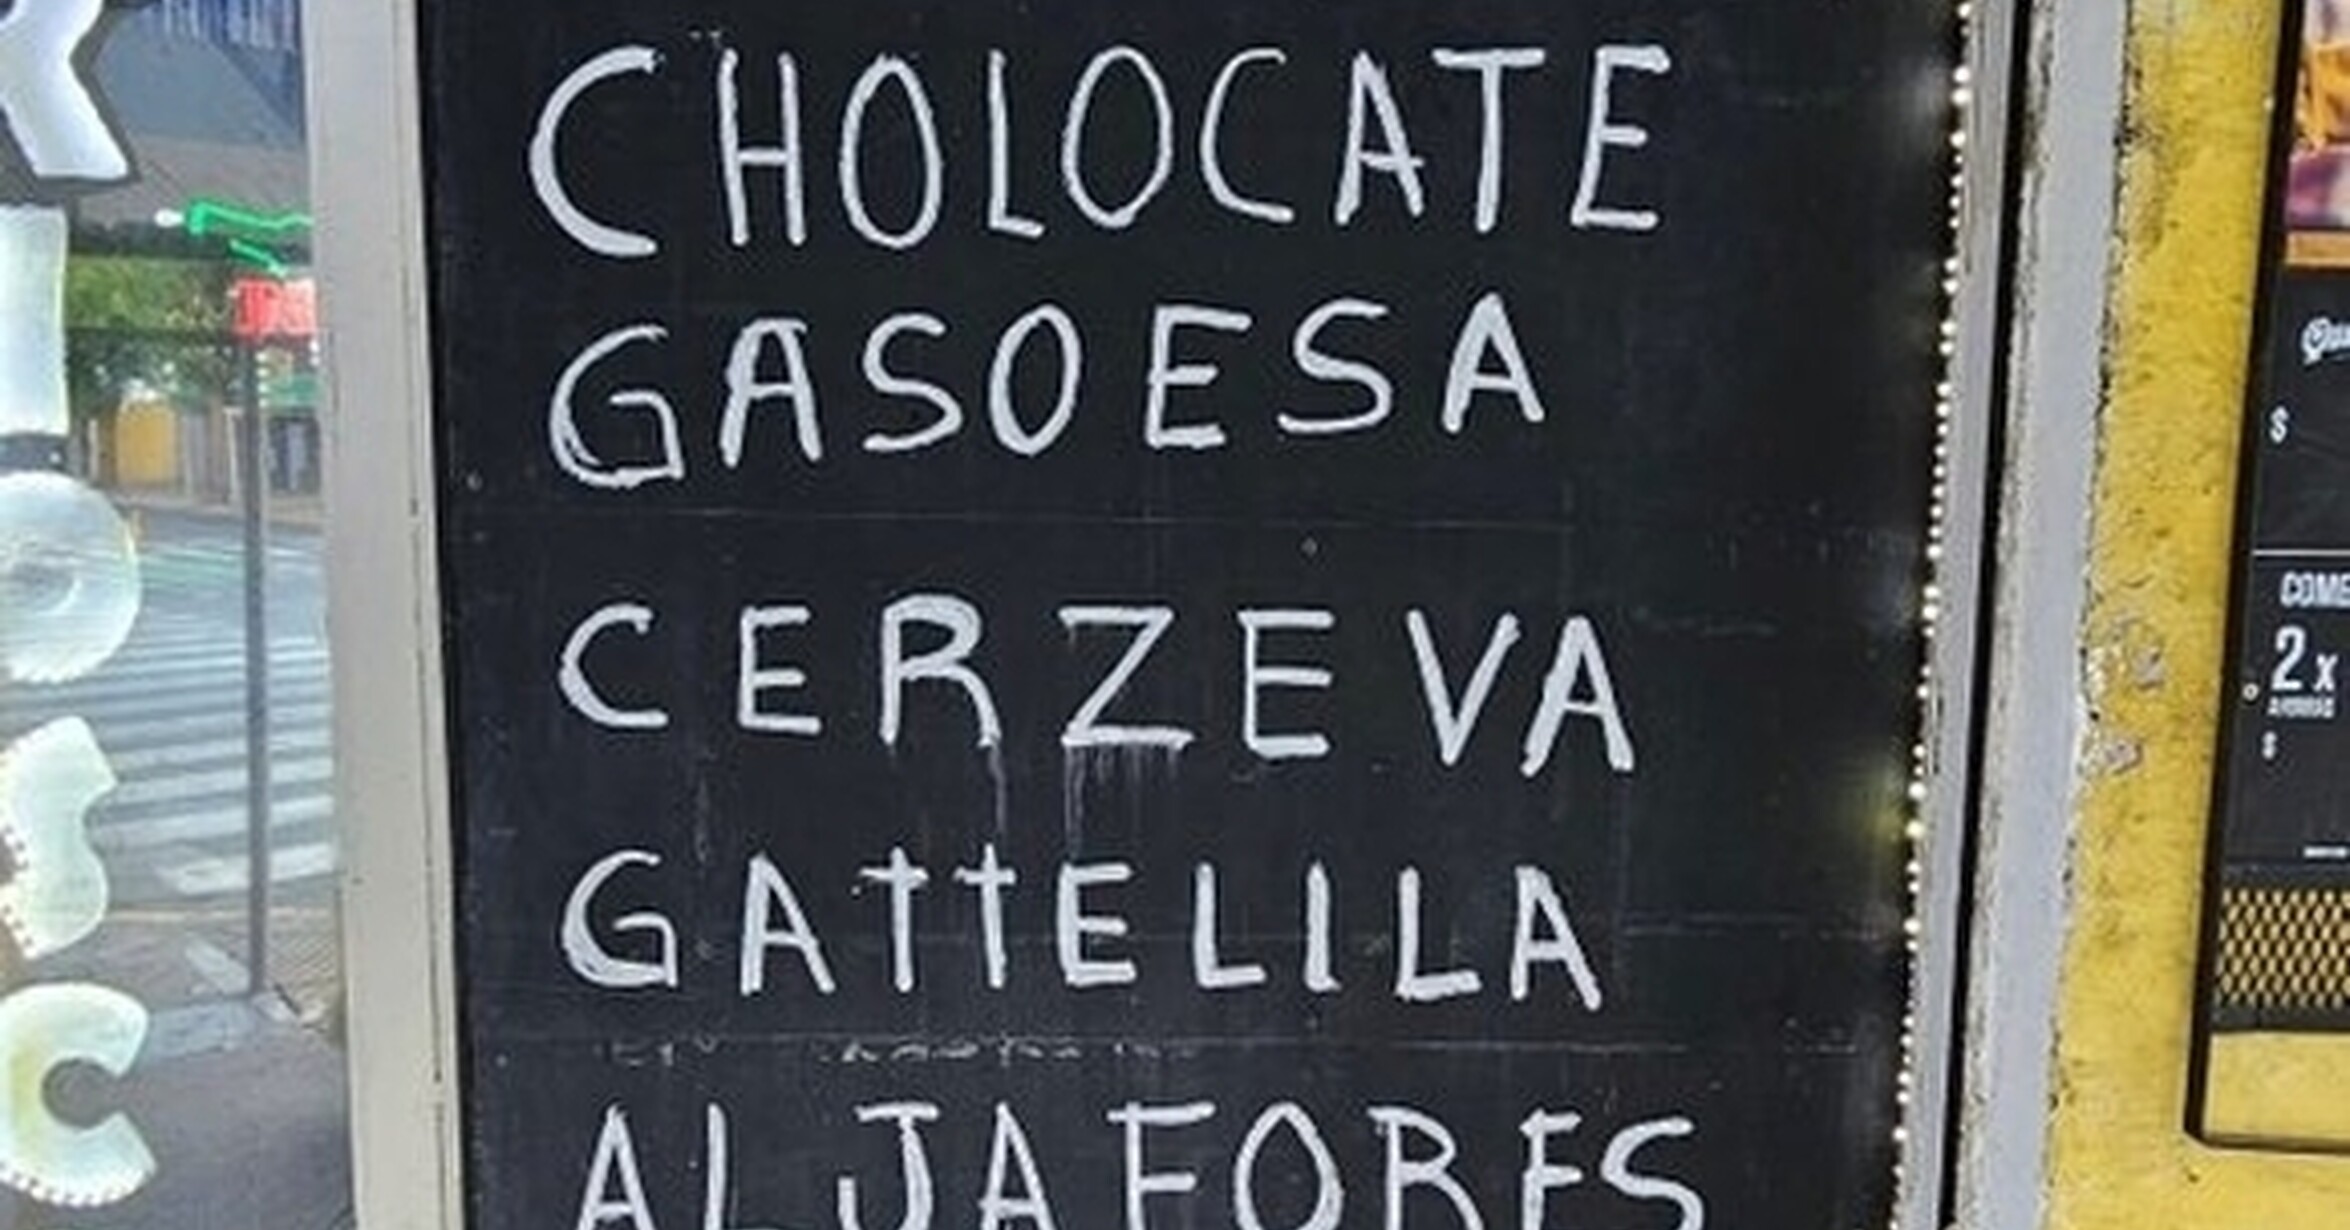 CHOLOCATE
GASOESA
CERZEVA
GATTELILA
ALJAFORES
COME
2 x
$
$
K
I
O
S
C